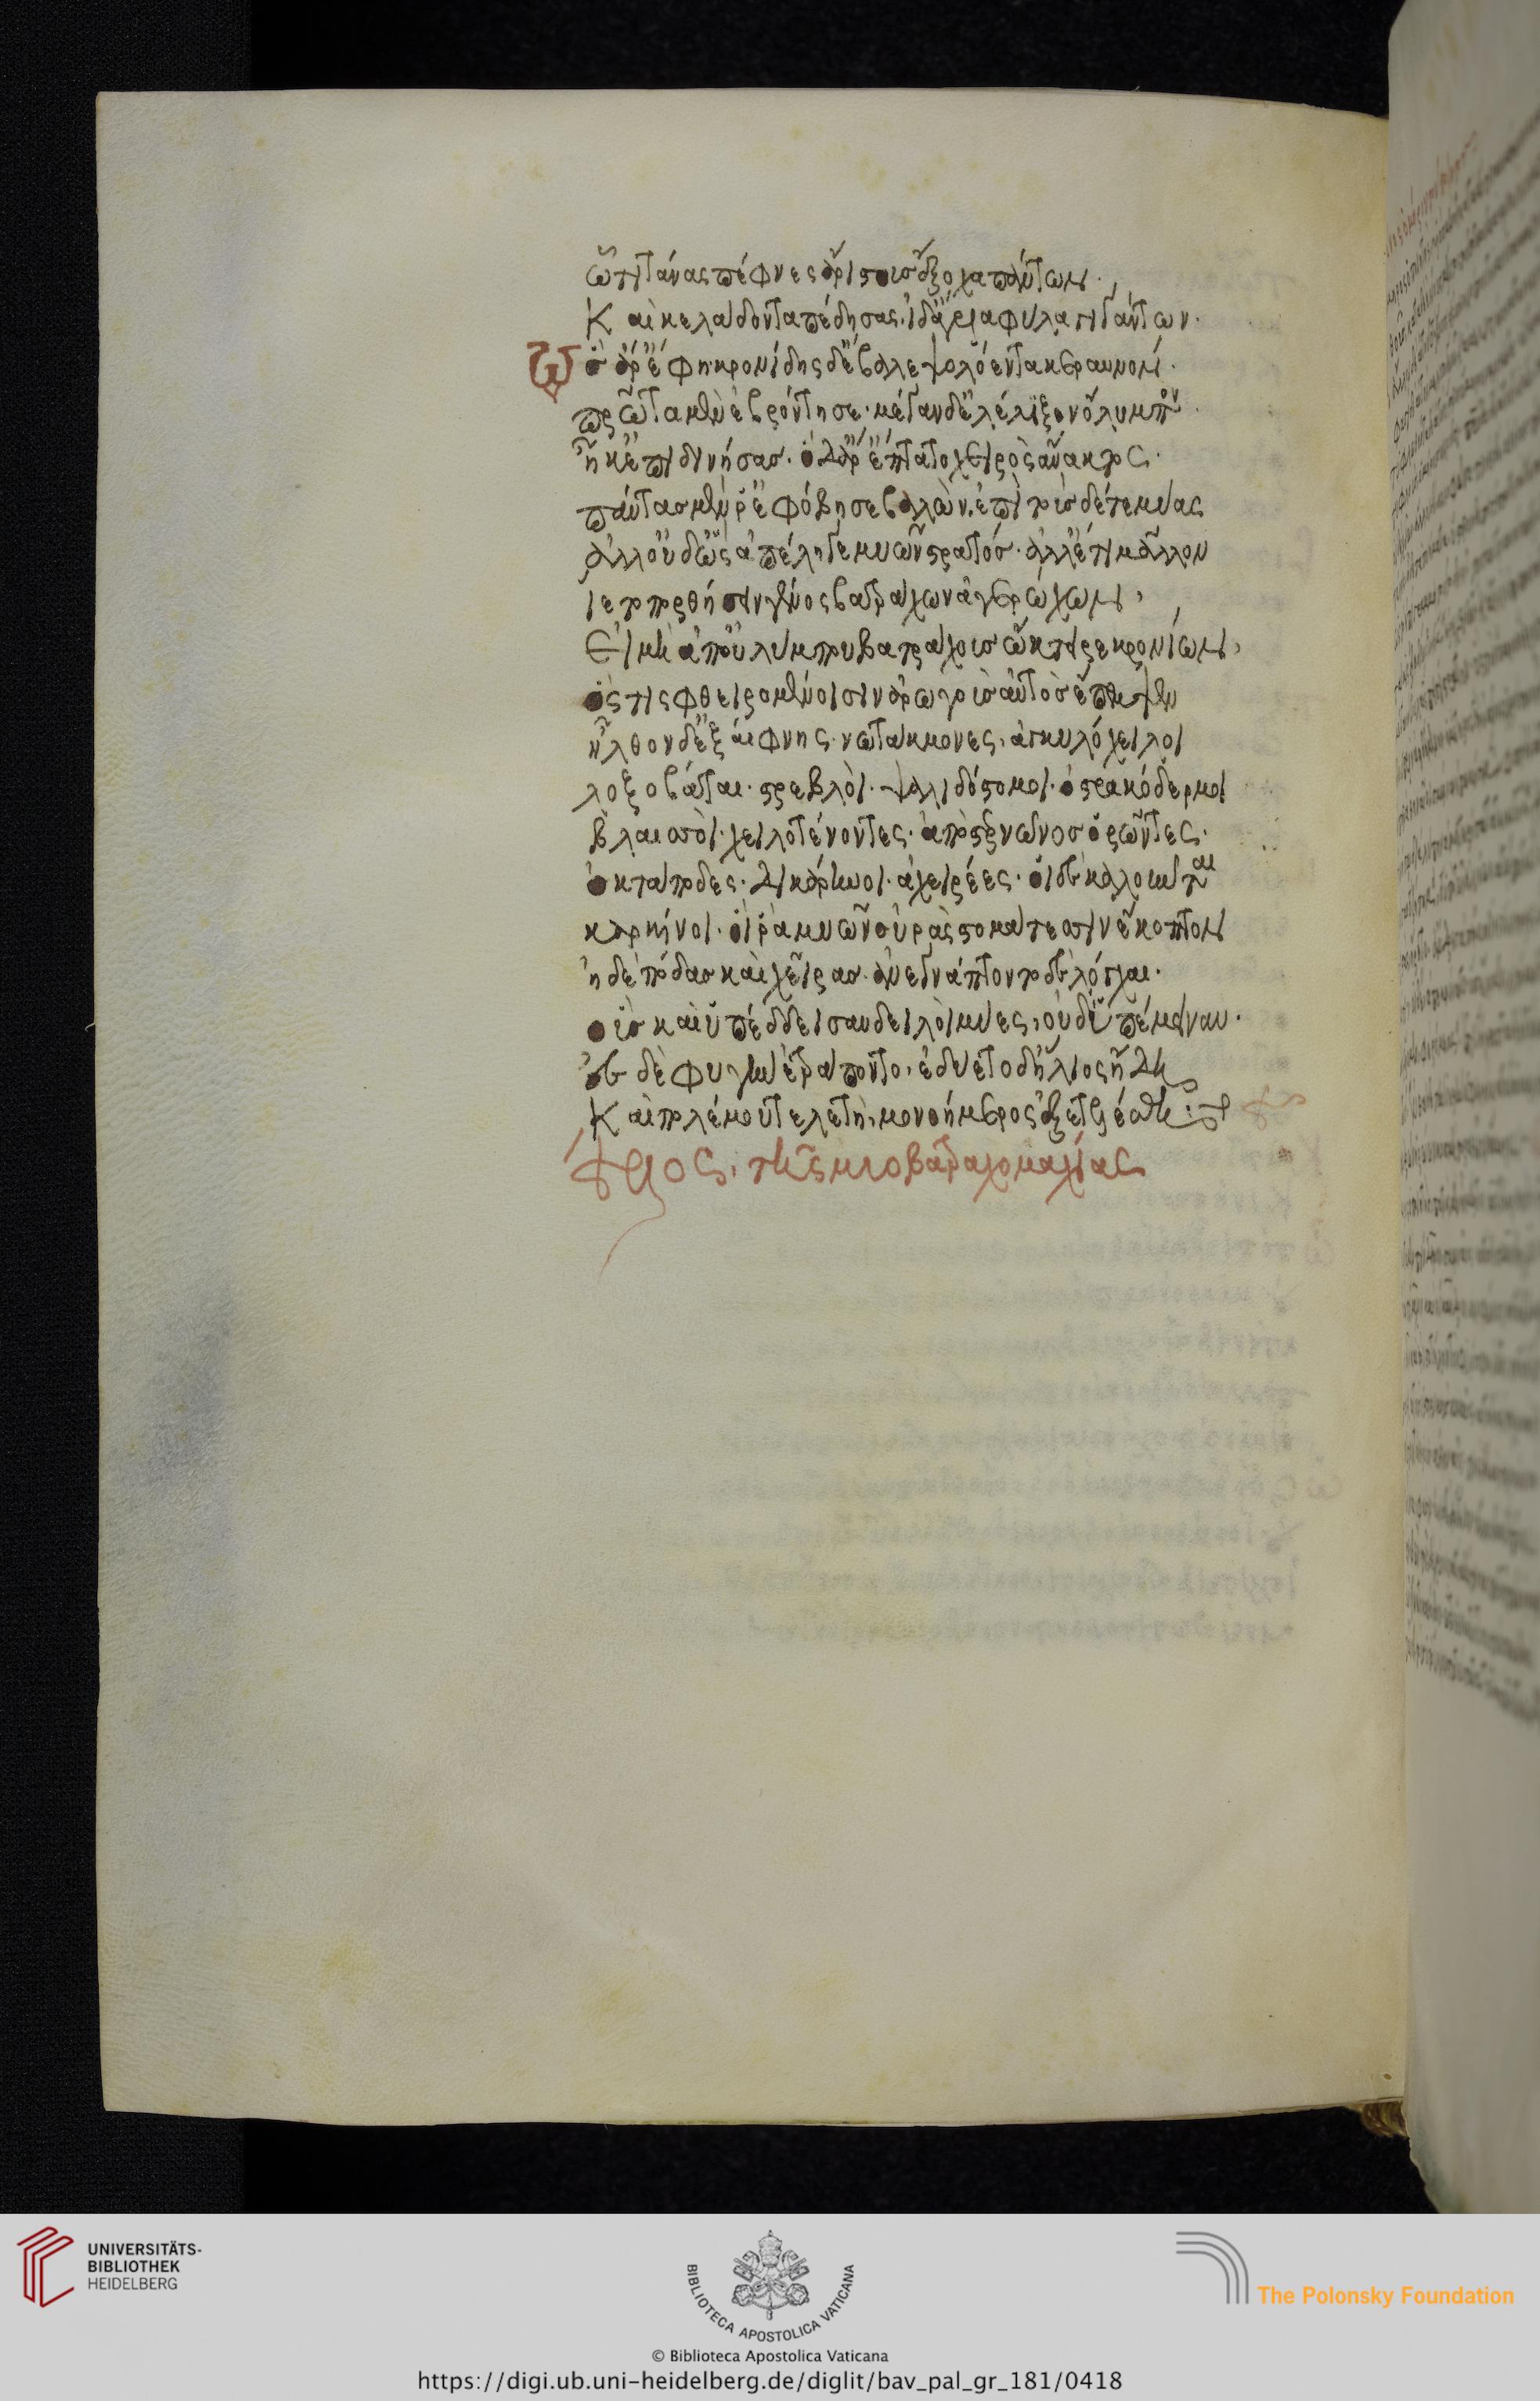 ὧ τιτάνας πέφνες ἄριστους ἔξοχα πάντων·
Καὶ κελάδοντα πέδησας· ἰδ' ἄγρια φῦλα γιγάντων·
ὣς ἄρ' ἔφη· κρονίδης δ' ἔβαλε ψολόεντα κεραυνόν·
πρῶτα μὲν ἐβρόντησε· μέγαν δ' ἐλέλιξεν ὄλυμπον·
ἧκ' ἐπιδινήσας· ὁ δ' ἄρ' ἔπτατο χειρὸς ἄνακτος·
πάντας μὲν ῥ' ἐφόβησε βαλὼν, ἐπὶ τοὺς δέ τε μύας
ἀλλ' οὐδ' ὧς ἀπέληγε μυῶν στρατός· ἀλλ' ἔτι μᾶλλον
ἵετο πορθήσειν γένος βατράχων ἀγερώχων,
Εἰ μὴ ἀπ' οὐλύμπου βατράχοις ὤκτειρε κρονίων,
ὅς τις φθειρομένοισιν ἀρωγοὺς αὐτὸς ἔπεμψεν
ἦλθον δ' ἐξαίφνης· νωτάκμονες, ἀγκυλόχειλοι
λοξοβάται· στρεβλοὶ· ψαλιδόστομοι· ὀστρακόδερμοι
βλαισοὶ· χειλοτένοντες· ἀπὸ στέρνων ἐσορῶντες·
ὀκτάποδες· δικάρηνοι· ἀχειρέες· οἱ δὲ καλοῦνται
καρκίνοι· οἵ ῥα μυῶν οὐρὰς στομάτεσσιν ἔκοπτον
ἠδὲ πόδας καὶ χεῖρας· ἀνεγνάπτοντο δὲ λόγχαι·
οὓς καὶ ὑπέδδεισαν δειλοὶ μύες, οὐδ' ὑπέμειναν·
ἐς δὲ φυγὴν ἐτράποντο, ἐδύετο δ' ἥλιος ἤδη
Καὶ πολέμου τελετὴ, μονοήμερος ἐξετελέσθη :
τέλος, τῆς μυοβατραχομαχίας
UNIVERSITÄTS-
BIBLIOTHEK
HEIDELBERG
BIBLIOTECA APOSTOLICA VATICANA
The Polonsky Foundation
© Biblioteca Apostolica Vaticana
https://digi.ub.uni-heidelberg.de/diglit/bav_pal_gr_181/0418